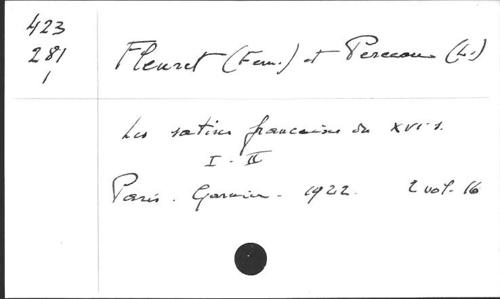 423
281
1
Fleuret (Fern.) et Perceau (L.)
Les satires françaises du XVI s.
I - II
Paris. Garnier. 1922. 2 vol. 16